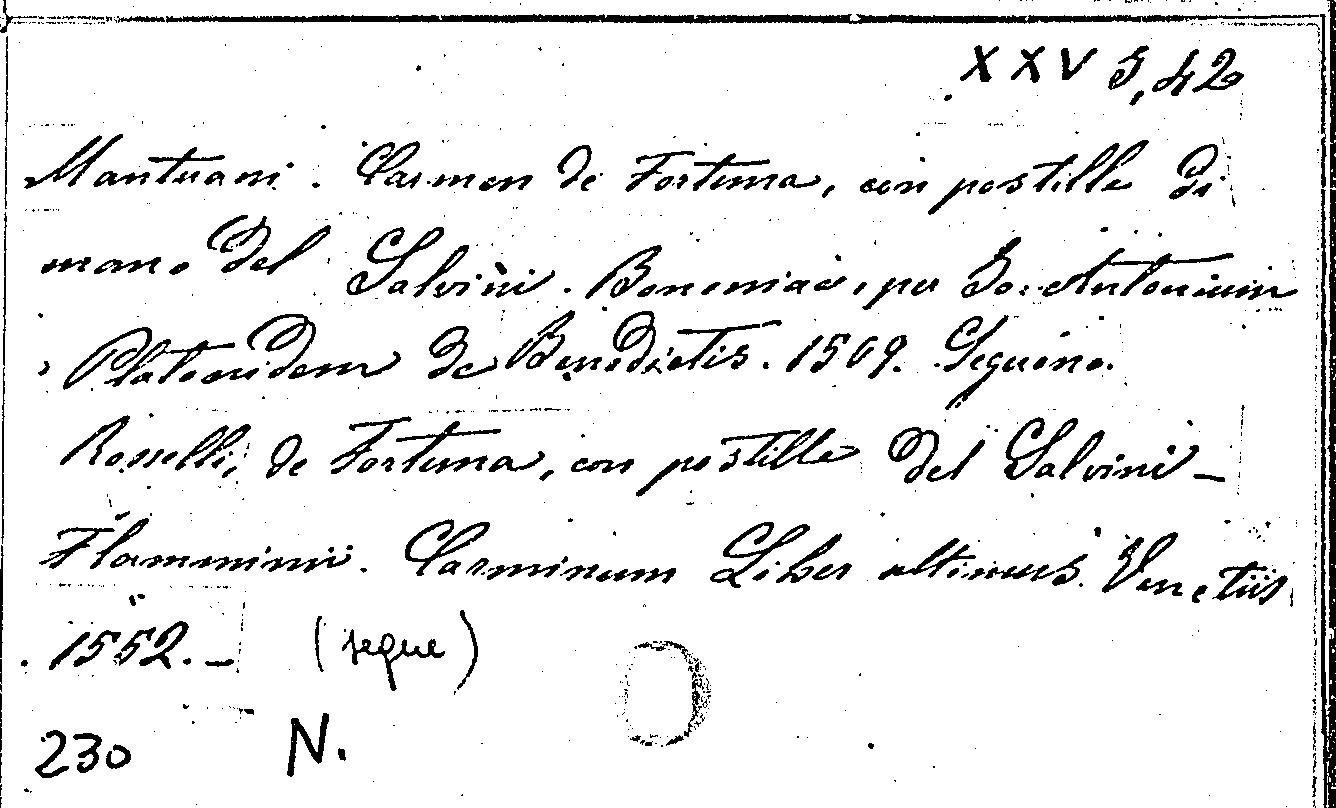 XXV 5,42
Mantuani. Carmen de Fortuna, con postille di
mano del Salvini. Bononiae, per Jo: Antonium
Platonidem de Benedictis. 1509. Seguono.
Rosselli, de Fortuna, con postille del Salvini –
Flamminii. Carminum Liber ultimus. Venetiis
1552. – (segue)
230 N.